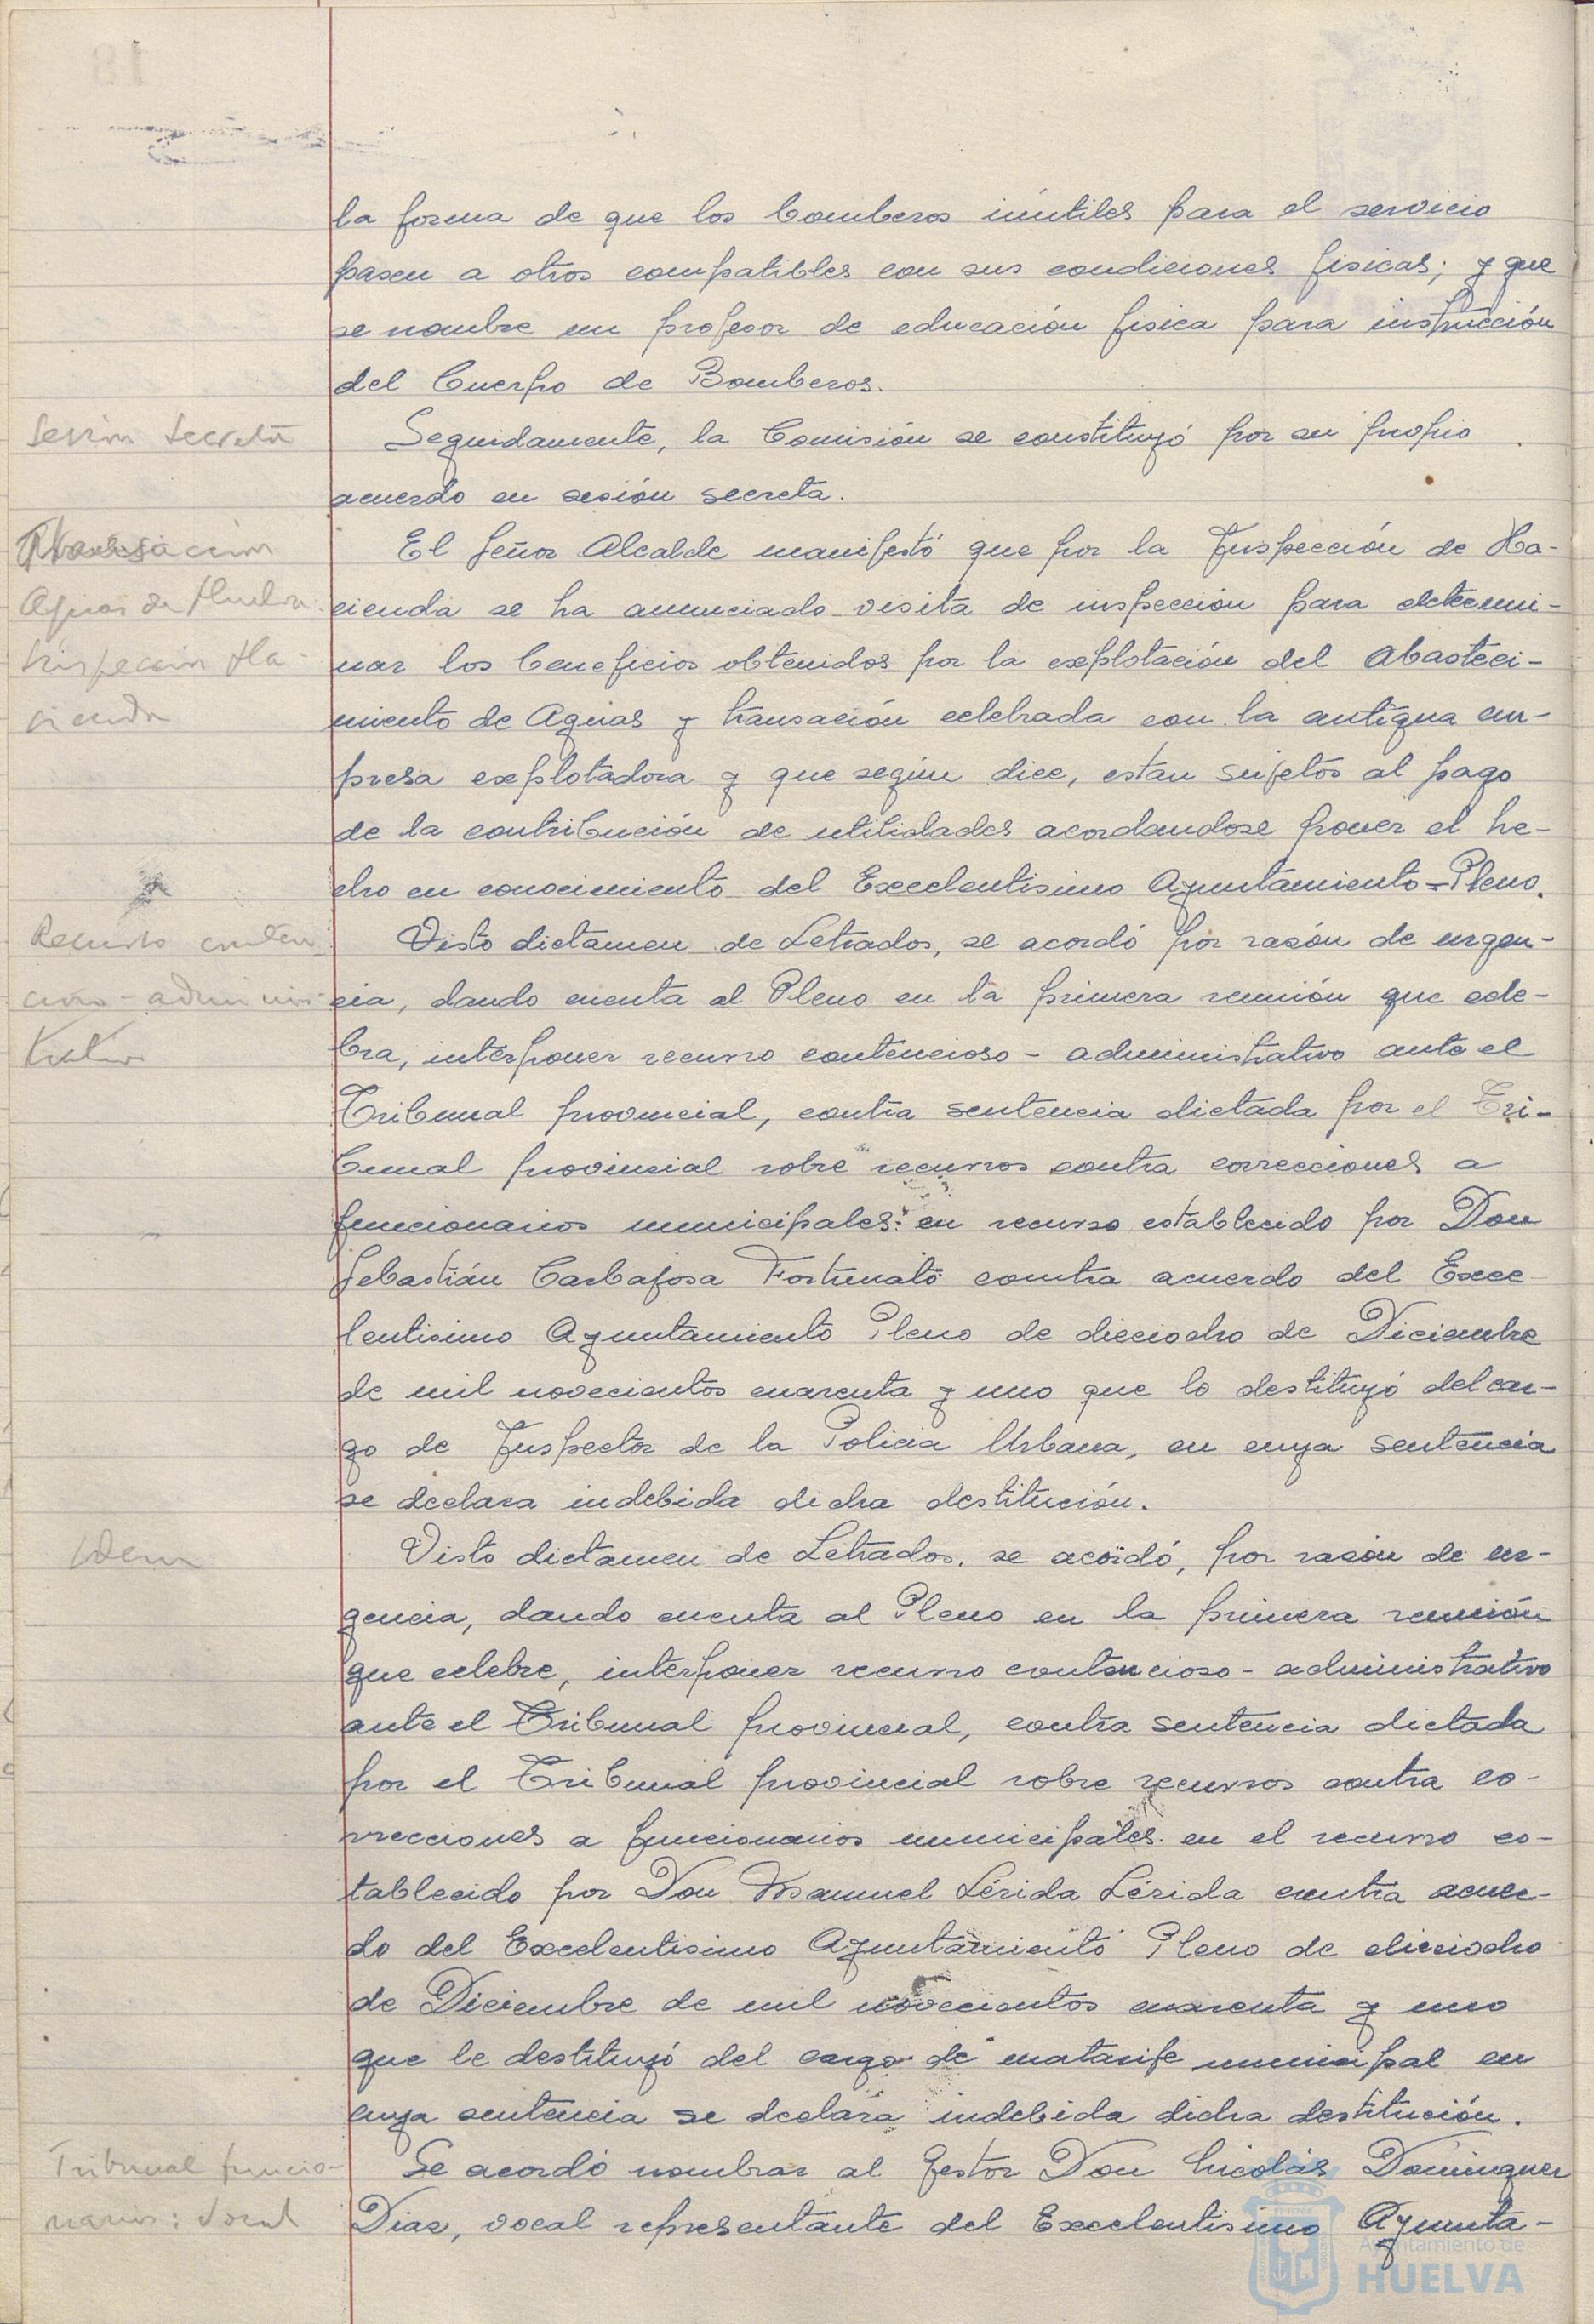 la forma de que los bomberos inútiles para el servicio
pasen a otros compatibles con sus condiciones fisicas; y que
se nombre un profesor de educación fisica para instrucción
del Cuerpo de Bomberos.
Sesión secreta
Seguidamente, la Comisión se constituyó por su propio
acuerdo en sesión secreta.
El Señor Alcalde manifestó que por la Inspección de Ha-
Aguas de Huelva
cienda se ha anunciado visita de inspección para determi-
Inspección Ha-
nar los beneficios obtenidos por la explotación del Abasteci-
cienda
miento de Aguas y transación celebrada con la antigua em-
presa explotadora y que según dice, estan sujetos al pago
de la contribución de utilidades acordandose poner el he-
cho en conocimiento del Excelentisimo Ayuntamiento=Pleno.
Recurso conten
Visto dictamen de Letrados, se acordó por razón de urgen-
cioso-adminis-
cia, dando cuenta al Pleno en la primera reunión que cele-
trativo
bra, interponer recurso contencioso-administrativo ante el
Tribunal provincial, contra sentencia dictada por el Tri-
bunal provincial sobre recursos contra correcciones a
funcionarios municipales en recurso establecido por Don
Sebastián Carbajosa Fortunato contra acuerdo del Exce
lentisimo Ayuntamiento Pleno de dieciocho de Diciembre
de mil novecientos cuarenta y uno que lo destituyó del car-
go de Inspector de la Policia Urbana, en cuya sentencia
se declara indebida dicha destitución.
Idem
Visto dictamen de Letrados, se acordó, por razón de ur-
gencia, dando cuenta al Pleno en la primera reunión
que celebre, interponer recurso contencioso-administrativo
ante el Tribunal provincial, contra sentencia dictada
por el Tribunal provincial sobre recursos contra co-
rrecciones a funcionarios municipales en el recurso es-
tablecido por Don Manuel Lérida Lérida contra acuer-
do del Excelentisimo Ayuntamiento Pleno de dieciocho
de Diciembre de mil novecientos cuarenta y uno
que le destituyó del cargo de matarife municipal en
cuya sentencia se declara indebida dicha destitución.
Tribunal funcio-
Se acordó nombrar al Gestor Don Nicolás Dominguez
narios: Vocal
Diaz, vocal representante del Excelentisimo Ayunta-
Ayuntamiento de
HUELVA